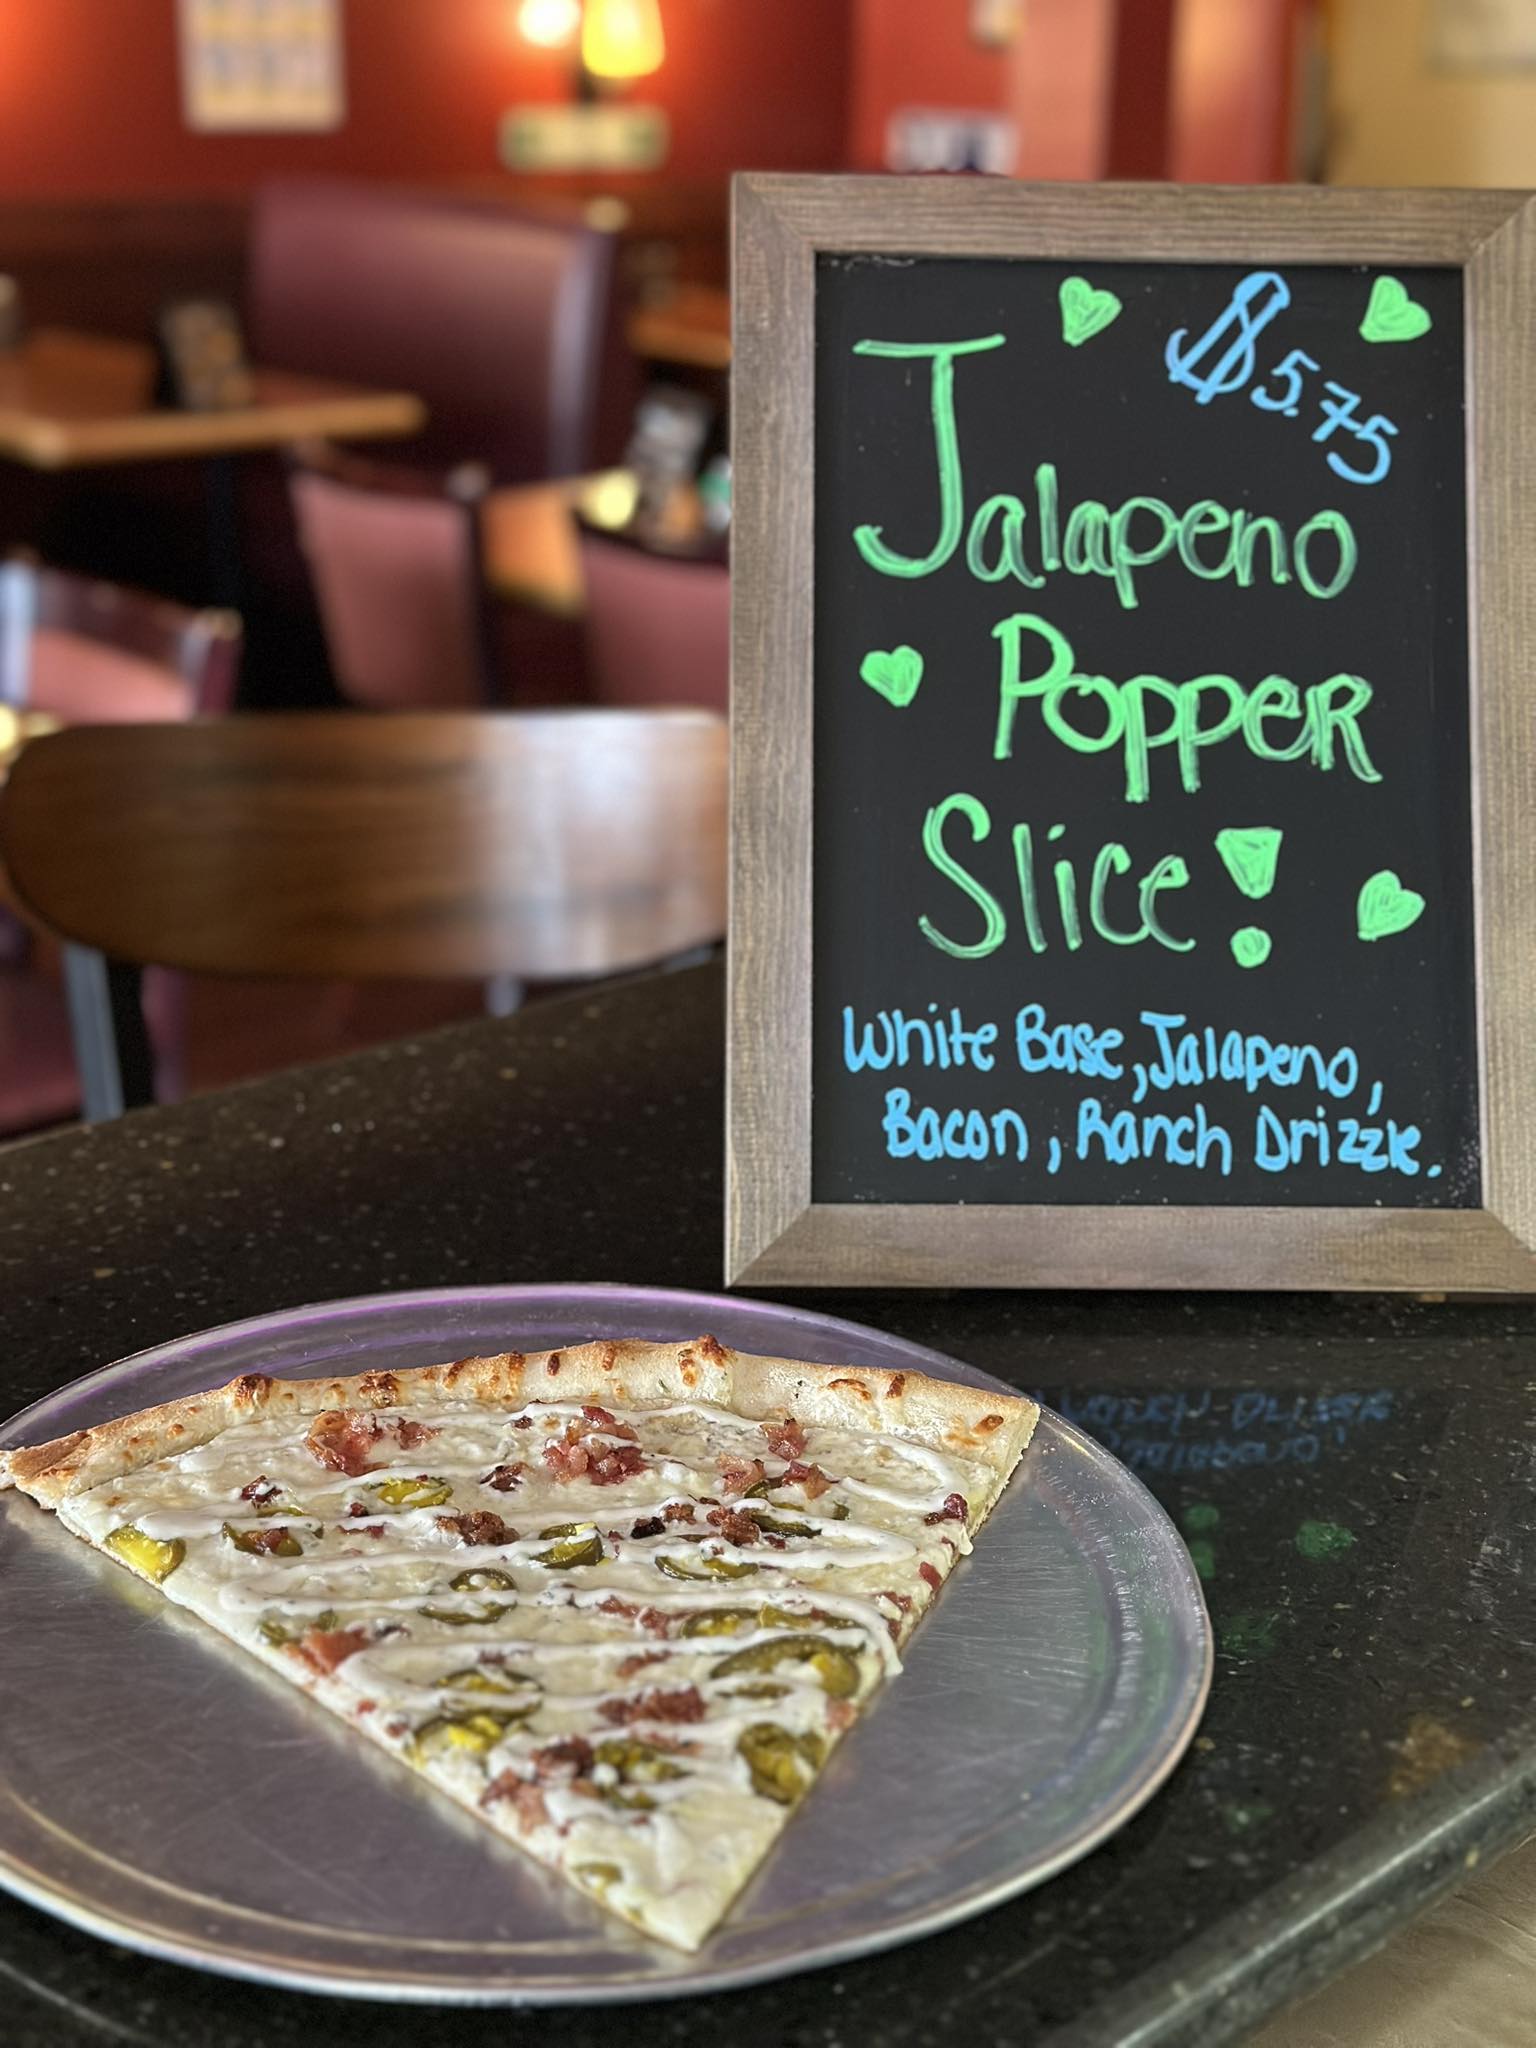 $5.75
Jalapeno
Popper
Slice!
White Base, Jalapeno,
Bacon, Ranch Drizzle.